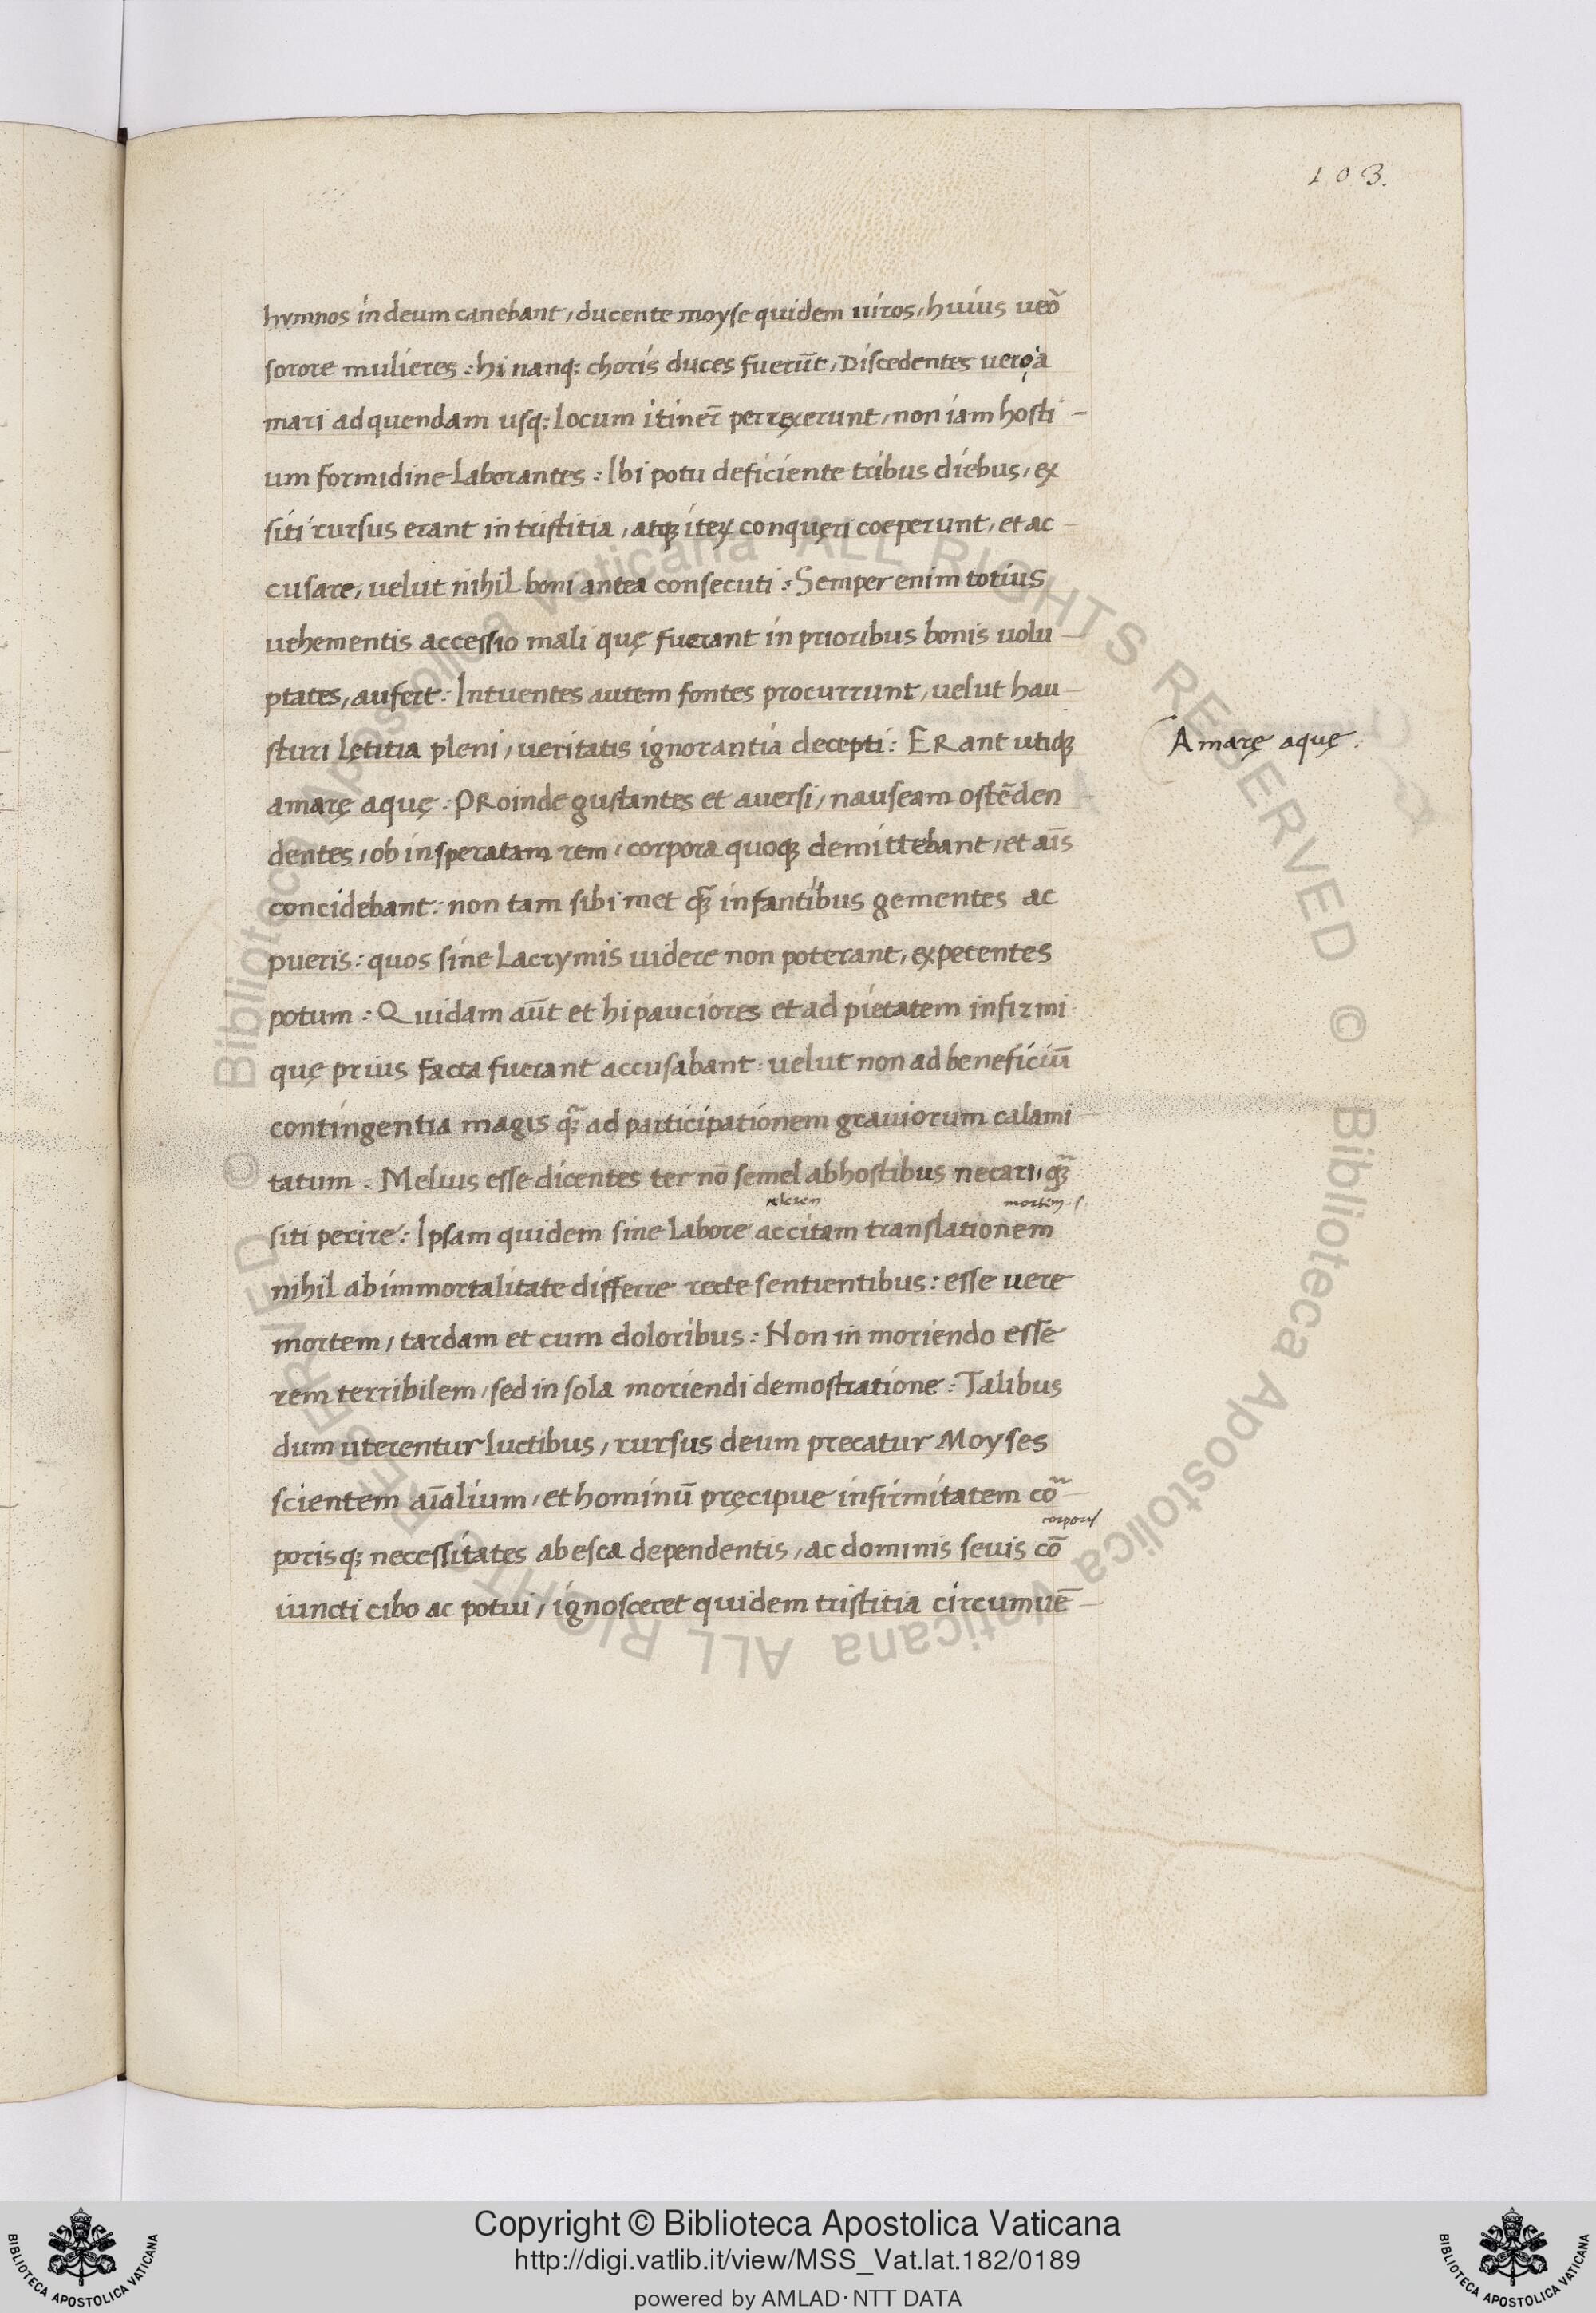 103.
hymnos in deum canebant, ducente moyse quidem uiros, huius ueõ
sorore mulieres: hi nanq; choris duces fuerūt, Discedentes uero a
mari ad quendam usq; locum itineř perrexerunt, non iam hosti-
um formidine laborantes: Ibi potu deficiente tribus diebus, ex
siti rursus erant in tristitia, atq; iteꝝ conquęri coeperunt, et ac-
cusare, uelut nihil boni antea consecuti: Semper enim totius
uehementis accessio mali quę fuerant in prioribus bonis uolu-
ptates, aufert: Intuentes autem fontes procurrunt, uelut hau-
sturi lętitia pleni, ueritatis ignorantia decepti: ERant utiq;
Amarę aquę:
amarę aquę: PRoinde gustantes et auersi, nauseam ostēden
dentes, ob insperatam rem, corpora quoq; demittebant, et aīs
concidebant: non tam sibi met q̃; infantibus gementes ac
pueris: quos sine lacrymis uidere non poterant, expetentes
potum: Quidam aūt et hi pauciores et ad pietatem infirmi
quę prius facta fuerant accusabant: uelut non ad beneficiū
contingentia magis q̃; ad participationem grauiorum calami-
tatum. Melius esse dicentes ter nō semel ab hostibus necari, q̃;
mortem. s.
siti perire: Ipsam quidem sine labore accitam translationem
nihil ab immortalitate differre recte sentientibus: esse uere
mortem, tardam et cum doloribus: Non in moriendo esse
rem terribilem, sed in sola moriendi demostratione: Talibus
dum uterentur luctibus, rursus deum precatur Moyses
scientem aīalium, et hominū pręcipue infirmitatem cõ-
corporis
porisq; necessitates ab esca dependentis, ac dominis seuis cō
iuncti cibo ac potui, ignosceret quidem tristitia circumuē-
© Biblioteca Apostolica Vaticana ALL RIGHTS RESERVED © Biblioteca Apostolica Vaticana ALL RIGHTS RESERVED
BIBLIOTECA APOSTOLICA VATICANA
Copyright © Biblioteca Apostolica Vaticana
http://digi.vatlib.it/view/MSS_Vat.lat.182/0189
powered by AMLAD·NTT DATA
BIBLIOTECA APOSTOLICA VATICANA